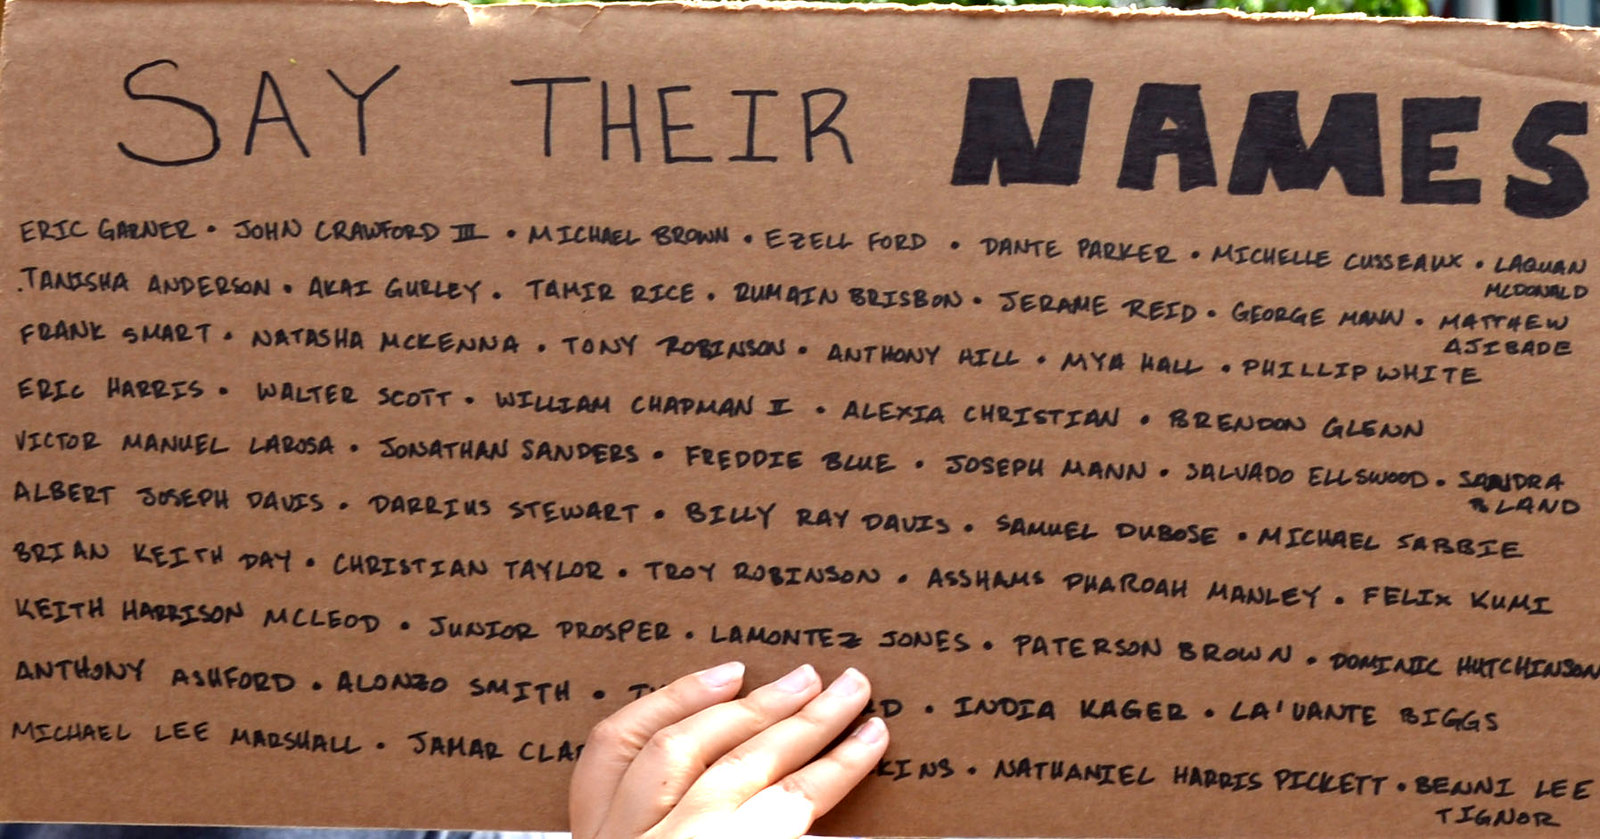 SAY THEIR NAMES
ERIC GARNER • JOHN CRAWFORD III • MICHAEL BROWN • EZELL FORD • DANTE PARKER • MICHELLE CUSSEAUX • LAQUAN
MCDONALD
TANISHA ANDERSON • AKAI GURLEY • TAMIR RICE • RUMAIN BRISBON • JERAME REID • GEORGE MANN • MATTHEW
AJIBADE
FRANK SMART • NATASHA MCKENNA • TONY ROBINSON • ANTHONY HILL • MYA HALL • PHILLIP WHITE
ERIC HARRIS • WALTER SCOTT • WILLIAM CHAPMAN II • ALEXIA CHRISTIAN • BRENDON GLENN
VICTOR MANUEL LAROSA • JONATHAN SANDERS • FREDDIE BLUE • JOSEPH MANN • SALVADO ELLSWOOD • SANDRA
BLAND
ALBERT JOSEPH DAVIS • DARRIUS STEWART • BILLY RAY DAVIS • SAMUEL DUBOSE • MICHAEL SABBIE
BRIAN KEITH DAY • CHRISTIAN TAYLOR • TROY ROBINSON • ASSHAMS PHAROAH MANLEY • FELIX KUMI
KEITH HARRISON MCLEOD • JUNIOR PROSPER • LAMONTEZ JONES • PATERSON BROWN • DOMINIC HUTCHINSON
ANTHONY ASHFORD • ALONZO SMITH • • INDIA KAGER • LA'VANTE BIGGS
MICHAEL LEE MARSHALL • JAMAR CLA KINS • NATHANIEL HARRIS PICKETT • BENNI LEE
TIGNOR